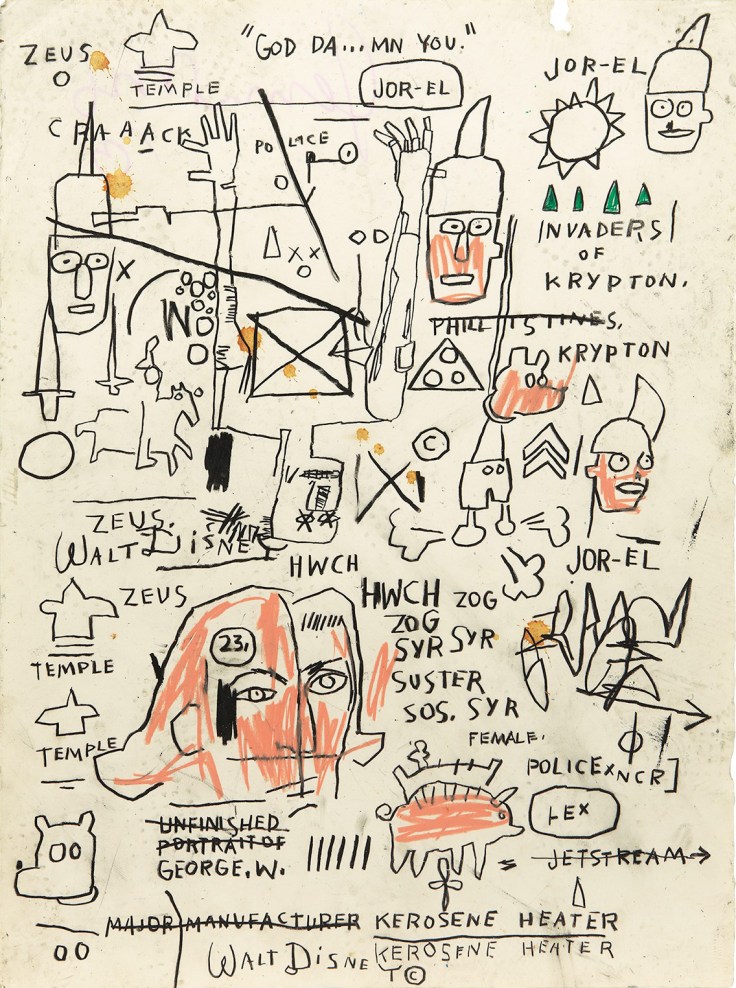 "GOD DA...MN YOU."
ZEUS
TEMPLE
JOR-EL
JOR-EL
CRAAACK
POLICE
XX
INVADERS
OF
KRYPTON.
X
W
PHILLISTINES.
KRYPTON
©
ZEUS.
WALT DISNEY
HWCH
JOR-EL
ZEUS
HWCH ZOG
ZOG
SYR SYR
SUSTER
SOS. SYR
FEMALE.
23,
TEMPLE
TEMPLE
POLICE x NCR]
UNFINISHED
PORTRAIT OF
GEORGE, W.
JETSTREAM
MAJOR MANUFACTURER KEROSENE HEATER
WALT DISNEY © KEROSENE HEATER